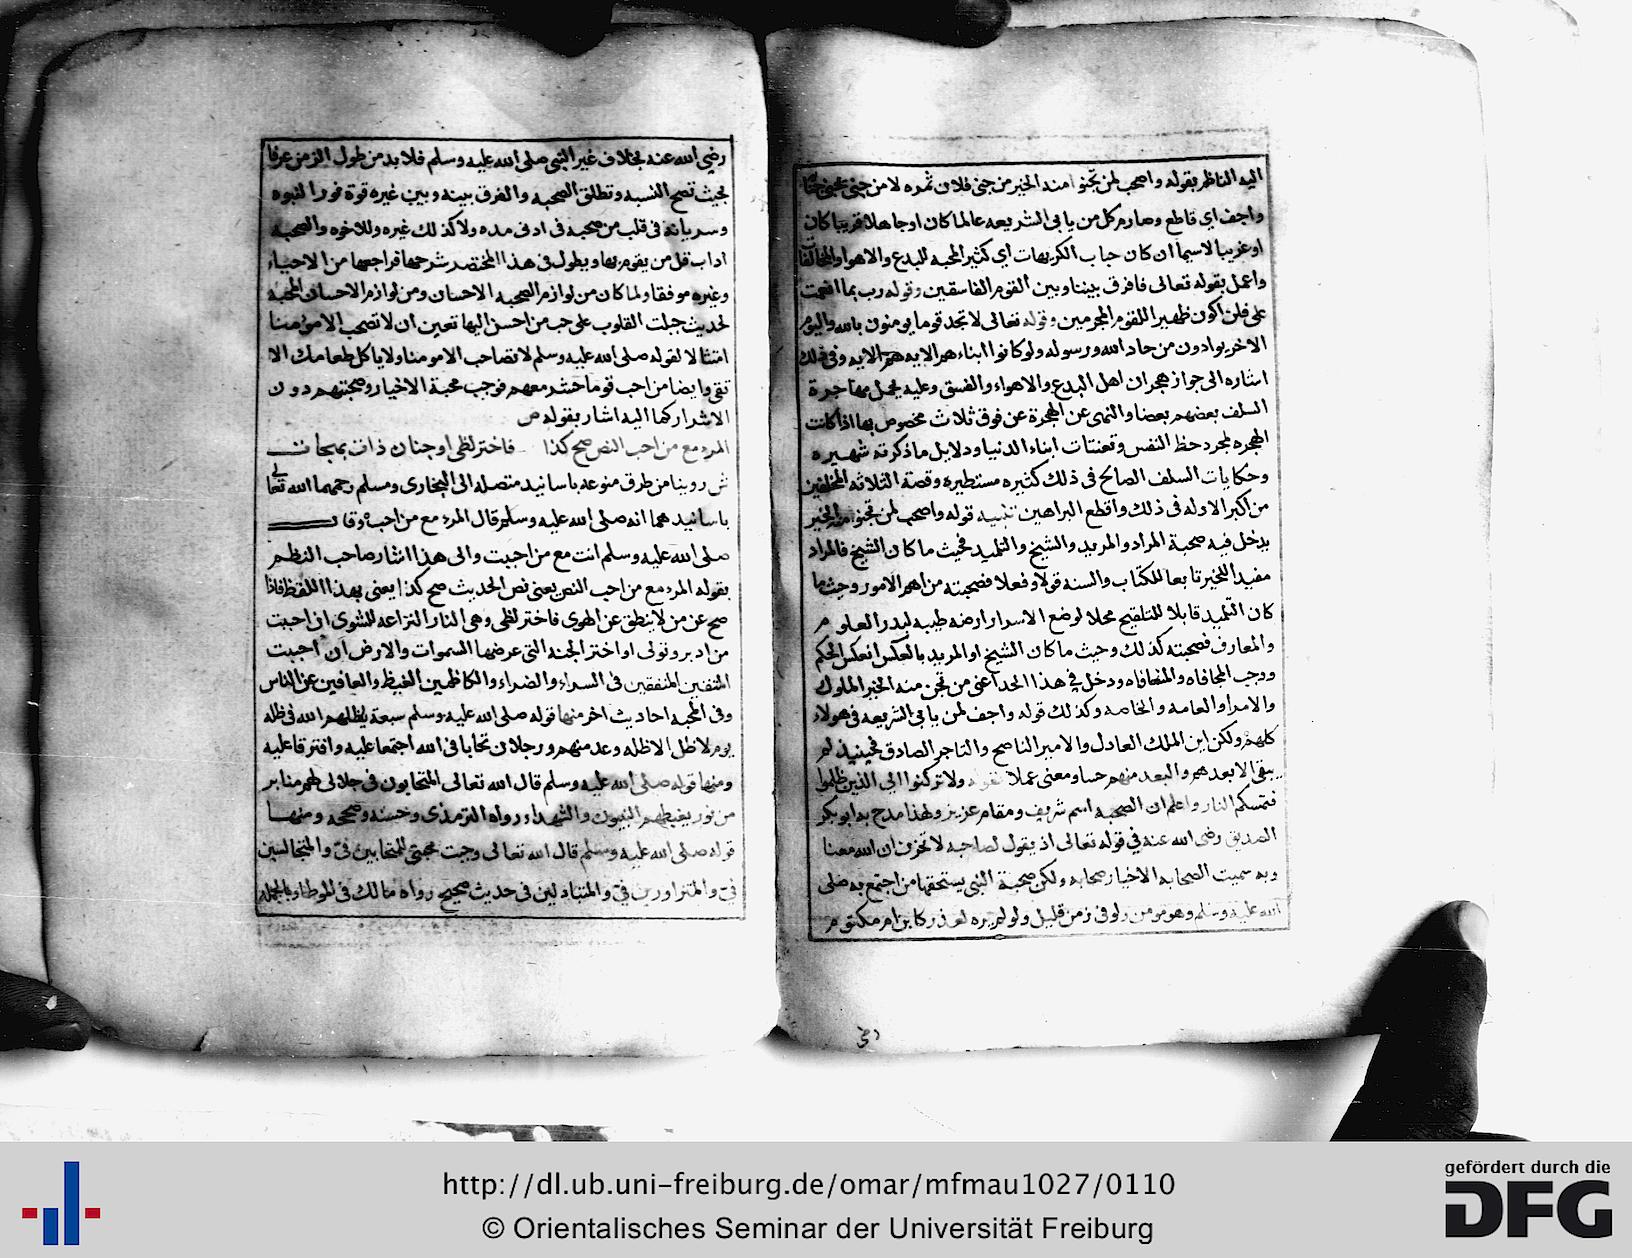 اليه الناظم بقوله واصحب لمن تجنوا منه الخير من جنى فلان ثمره لا من جنى يجنى
واجف اي قاطع وصارم كل من يابى الشريعه عالما كان اوجاهلا قريبا كان
اوغريبا لاسيما ان كان جاب الكريهات اي كثير المحبه للبدع والاهوا والمخالفا
واعمل بقوله تعالى فافرق بيننا وبين القوم الفاسقين وقوله رب بما انعمت
على فلن اكون ظهيرا للقوم المجرمين وقوله تعالى لا تجد قوما يومنون بالله واليوم
الاخر يوادون من حاد الله ورسوله ولو كانوا ابناءهم الايه وفى ذلك
اشاره الى جواز هجران اهل البدع والاهواء والفسق وعليه يحمل مهاجرة
السلف بعضهم بعضا والنهى عن الهجرة عن فوق ثلاث مخصوص بها اذا كانت
الهجره لمجرد حظ النفس وتعنتات ابناء الدنيا ودلايل ما ذكرته شهيره
وحكايات السلف الصالح فى ذلك كثيره مستطيره وقصة الثلاثه المخلفين
من اكبر الاوله فى ذلك واقطع البراهين تنبيه قوله واصحب لمن تجنوا منه الخير
يدخل فيه صحبة المراد والمريد والشيخ والتلميد فحيث ما كان الشيخ فالمراد
مفيدا للخير تابعا للكتاب والسنه قولا وفعلا فصحبته من اهم الامور وحيث ما
كان التلميد قابلا للتلقيح محلا لوضع الاسرار ارضه طيبه لبدر العلوم
والمعارف فصحبته كذلك وحيث ما كان الشيخ او المريد بالعكس انعكس الحكم
ووجب المجافاه والمنافاه ودخل في هذا الحد اعنى من تجن منه الخير الملوك
والامرا والعامه والخاصه وكذلك قوله واجف لمن يابى الشريعه فى هولاء
كلهم ولكن اين الملك العادل والامير الناصح والتاجر الصادق فحينيذ لم
يبقى الا بعدهم والبعد منهم حسا ومعنى عملا بقوله ولا تركنوا الي الذين ظلموا
فتمسكم النار واعلم ان الصحبه اسم شريف ومقام عزيز ولهذا مدح به ابو بكر
الصديق رضى الله عنه في قوله تعالى اذ يقول لصاحبه لا تحزن ان الله معنا
وبه سميت الصحابه الاخيار صحابه ولكن صحبة النبى يستحقها من اجتمع به صلى
الله عليه وسلم وهو مومن ولو فى زمن قليل ولو لم يره لعذر كابن ام مكتوم
رضى
رضي الله عنه بخلاف غير النبى صلى الله عليه وسلم فلا بد من طول الزمن عرفا
بحيث تصح النسبه وتطلق الصحبه والفرق بينه وبين غيره قوة نور النبوه
وسريانه فى قلب من صحبه فى ادنى مده ولا كذلك غيره وللاخوه والصحبه
اداب قل من يقوم بها ويطول فى هذا المختصر شرحها فراجعها من الاحياء
وغيره موفقا ولما كان من لوازم الصحبه الاحسان ومن لوازم الاحسان المحبه
لحديث جبلت القلوب على حب من احسن اليها تعين ان لا تصحب الا مومنا
امتثالا لقوله صلى الله عليه وسلم لا تصاحب الا مومنا ولا ياكل طعامك الا
تقى وايضا من احب قوما حشر معهم فوجب محبة الاخيار وصحبتهم دون
الاشرار كما اليه اشار بقوله ص
المرء مع من احب النص صح كذا فاختر لظى اوجنان ذات بهجات
ش روينا من طرق منوعه باسانيد متصله الى البخارى ومسلم رحمهما الله تعالى
باسانيدهما انه صلى الله عليه وسلم قال المرء مع من احب وقال
صلى الله عليه وسلم انت مع من احببت والى هذا اشار صاحب النظم
بقوله المرء مع من احب النص يعنى نص الحديث صح كذا يعنى بهذا اللفظ فاذا
صح عن من لا ينطق عن الهوى فاختر لظى وهى النار النزاعه للشوى ان احببت
من ادبر وتولى او اختر الجنه التى عرضها السموات والارض ان احببت
المتقين المنفقين فى السراء والضراء والكاظمين الغيظ والعافين عن الناس
وفى المحبه احاديث اخر منها قوله صلى الله عليه وسلم سبعة يظلهم الله فى ظله
يوم لا ظل الا ظله وعد منهم ورجلان تحابا فى الله اجتمعا عليه وافترقا عليه
ومنها قوله صلى الله عليه وسلم قال الله تعالى المتحابون فى جلالى لهم منابر
من نور يغبطهم النبيون والشهداء رواه الترمذى وحسنه وصححه ومنها
قوله صلى الله عليه وسلم قال الله تعالى وجبت محبتى للمتحابين فيّ والمتجالسين
فيّ والمتزاورين فيّ والمتباذلين فى حديث صحيح رواه مالك فى الموطا وبالجمله
http://dl.ub.uni-freiburg.de/omar/mfmau1027/0110
© Orientalisches Seminar der Universität Freiburg
gefördert durch die
DFG